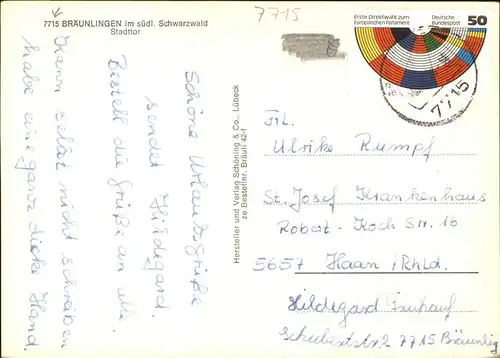 7715 BRÄUNLINGEN im südl. Schwarzwald
Stadttor
7715
Erste Direktwahl zum
Europäischen Parlament
Deutsche
Bundespost
50
7715
Schöne Urlaubsgrüße
sendet Hildegard.
Bestell die Grüße an alle.
Kann selbst nicht schreiben
habe eine ganze dicke Hand.
Hersteller und Verlag Schöning & Co., Lübeck
ze Bestellnr. Bräuli 42-f
Frl.
Ulrike Rumpf
St. Josef Krankenhaus
Robert-Koch Str. 16
5657 Haan/Rhld.
Hildegard
Schubertstr 2 7715 Bräunling